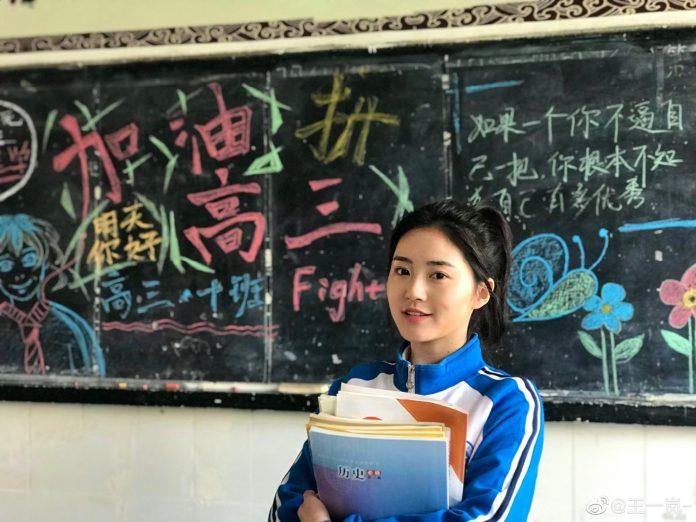 加油 拼
高三
用天
你好
高三 十班
Fight
如果一个你不逼自
己一把,你根本不知
自多优秀
历史
@王一岚-